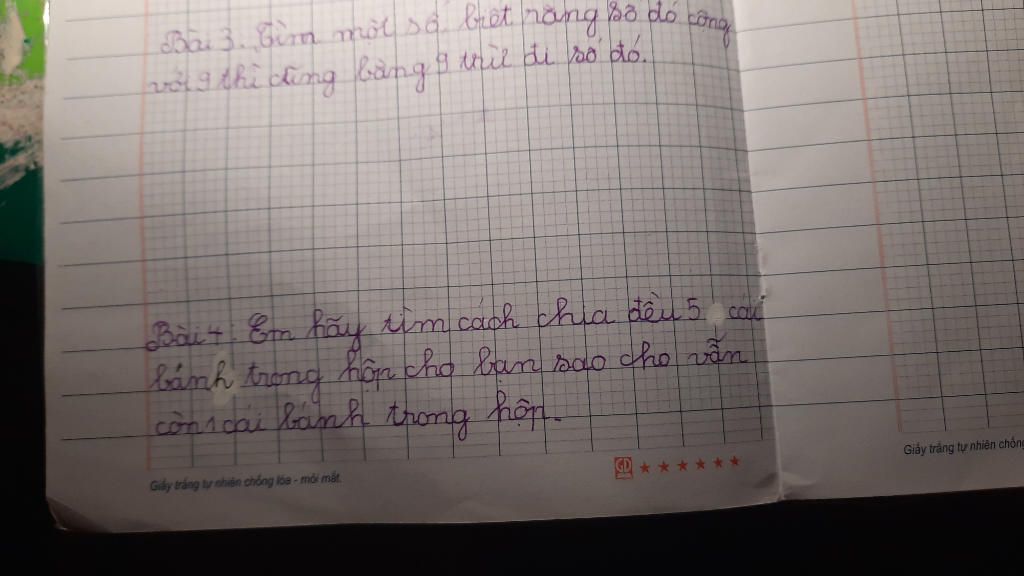 Bài 3. Tìm một số. biết rằng số đó cộng
với 9 thì cũng bằng 9 trừ đi số đó.
Bài 4: Em hãy tìm cách chia đều 5 cái
bánh trong hộp cho bạn sao cho vẫn
còn 1 cái bánh trong hộp.
Giấy trắng tự nhiên chống lóa - mỏi mắt.
GD
Giấy trắng tự nhiên chống